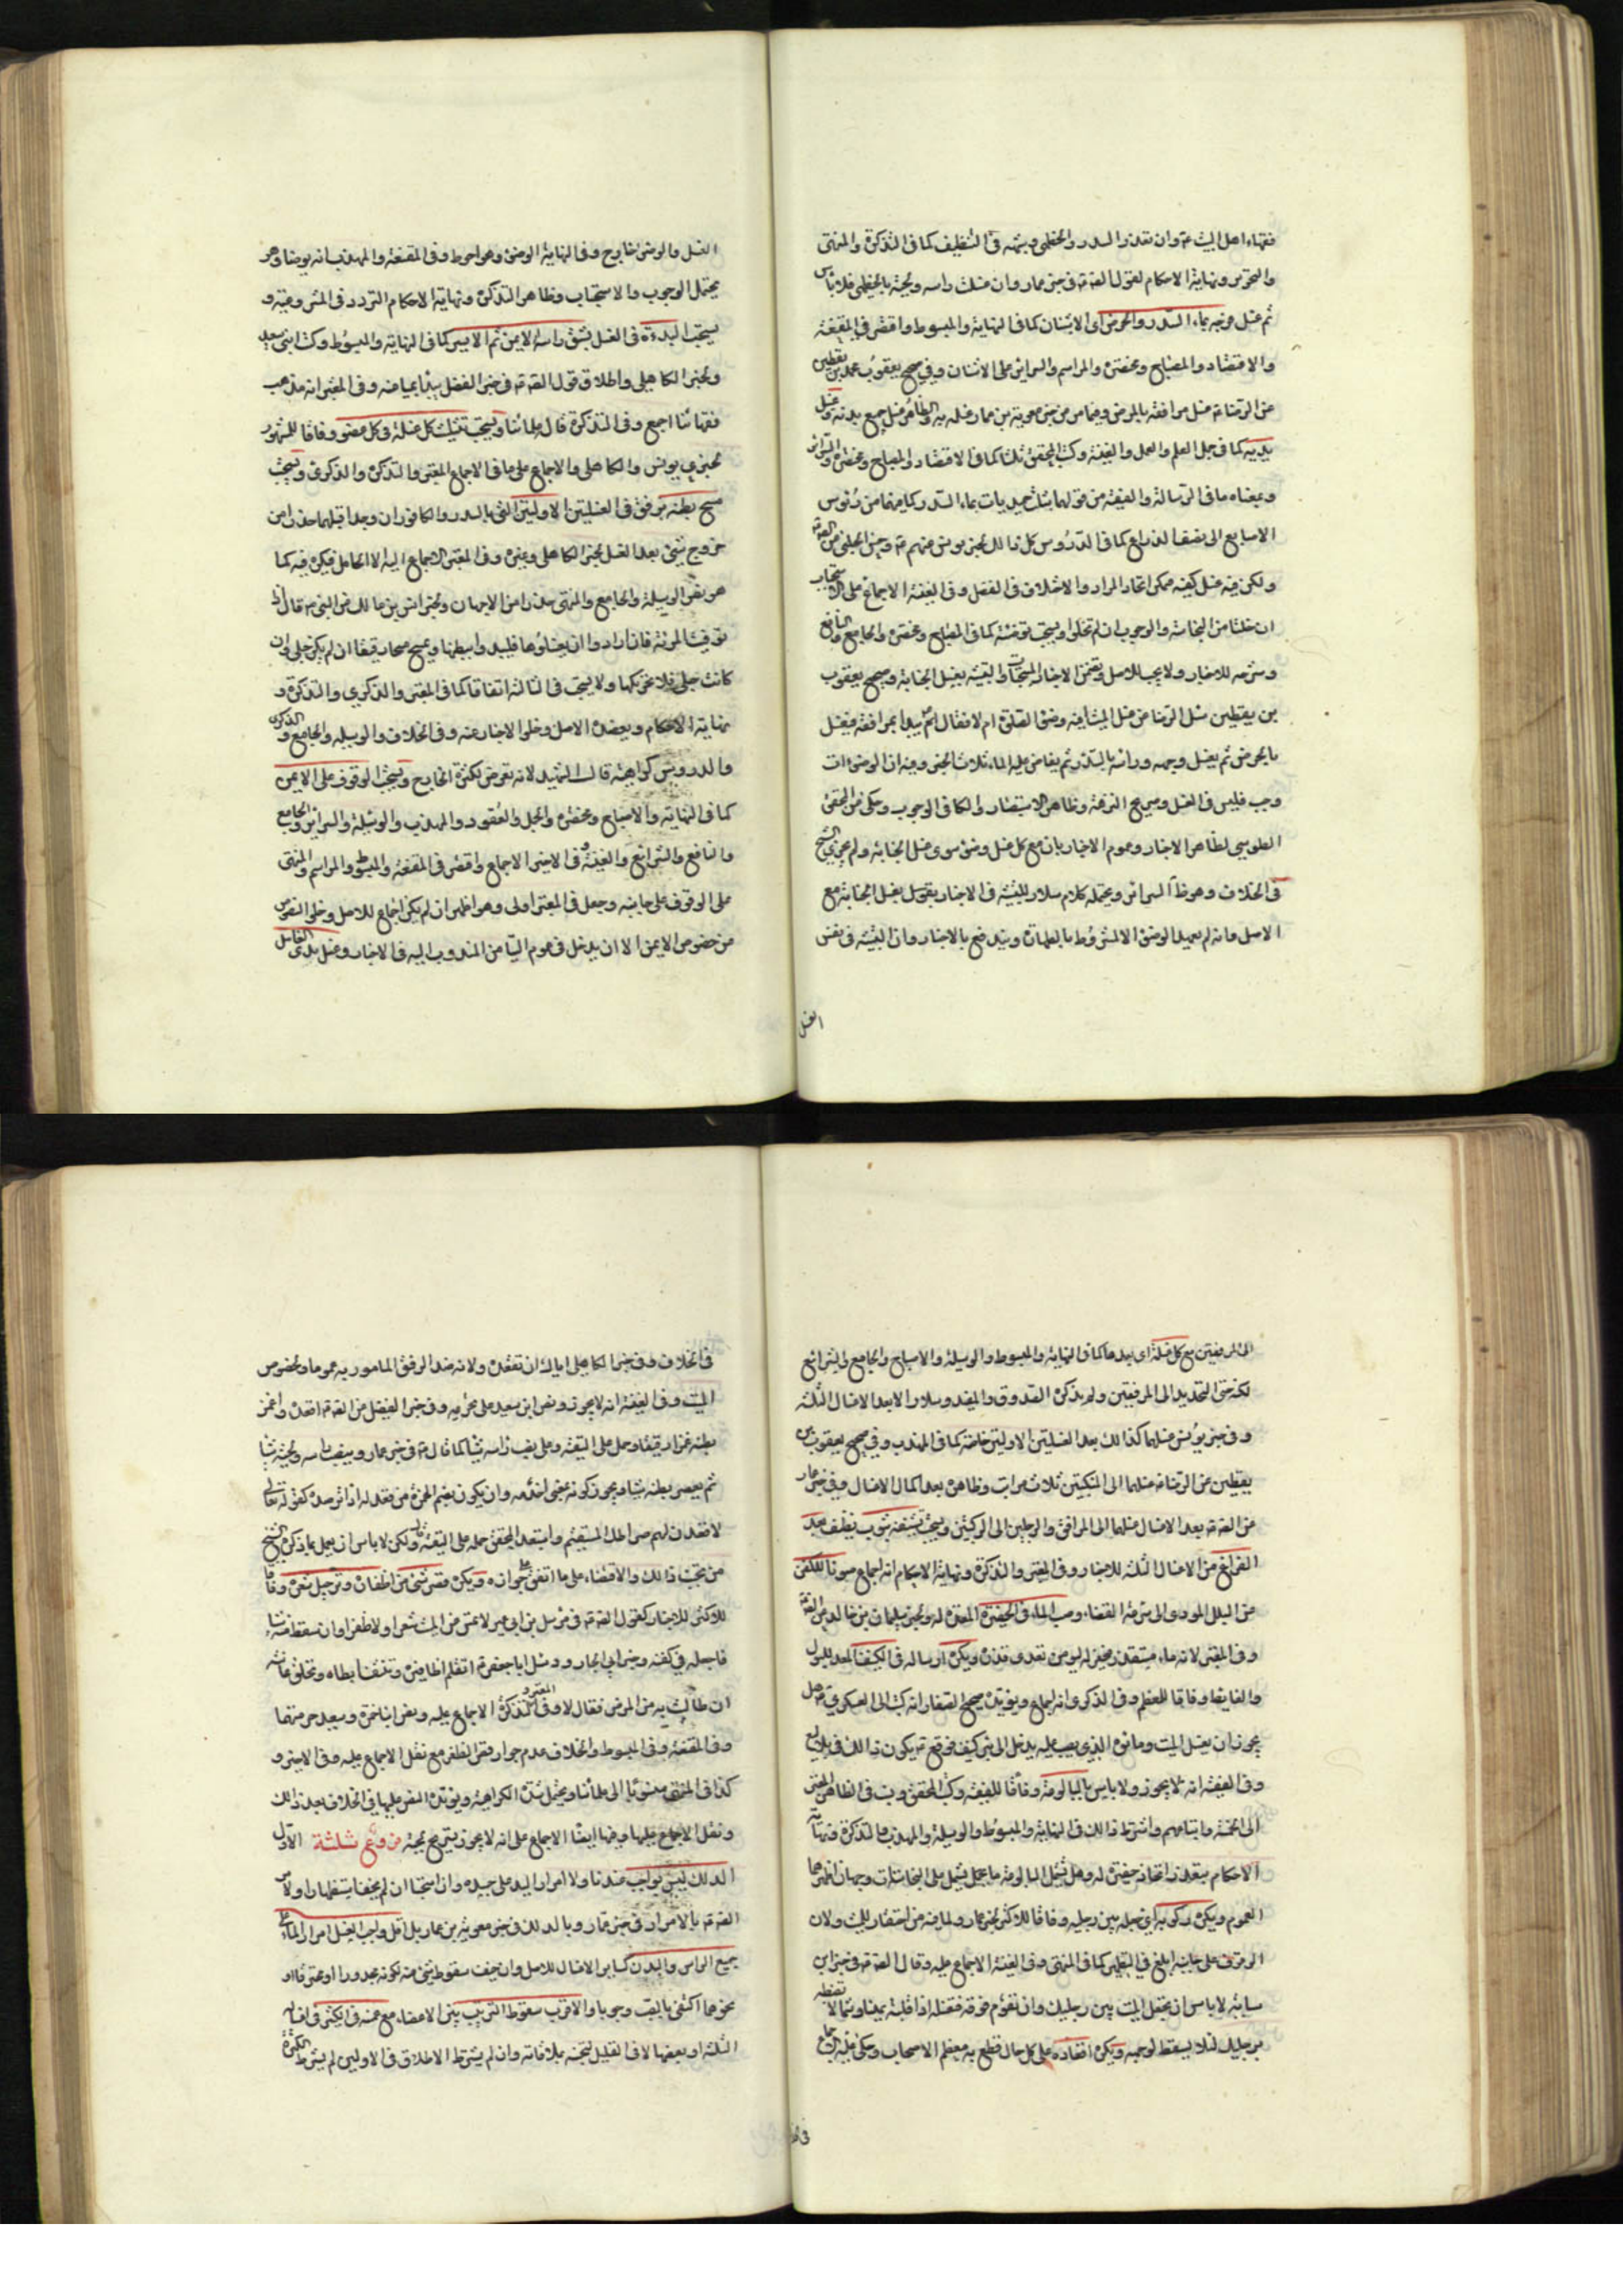 فقهاء اهل البيت ع وان تعذر السدر والخطمي وشبهه في التنظيف كما في التذكرة والمنتهى
والتحرير ونهاية الاحكام لقول الصادق ع في خبر عمار وان غسلت راسه ولحيته بالخطمي فلا باس
ثم غسل فرجه بماء السدر والحرض اى الاشنان كما في النهاية والمبسوط واقتصر في المقنعة
والاقتصاد والمصباح ومختصره والمراسم والسرائر على الاشنان وفي صحيح يعقوب بن يقطين
عن الرضا ع غسل مرافقه بالحرض
يديه كما في جمل العلم والعمل والغنية وكتب المحقق ثلثا كما في الاقتصاد والمصباح ومختصره والسرائر
وبمعناه ما في الرسالة والفقيه من قولهما بثلث حميديات بماء السدر كلما منها من رؤس
الاصابع الى نصف الذراع كما في الدروس كل ذلك لخبر يونس عنهم ع وحسن الحلبي عن الصادق ع
ولكن فيه غسل كفيه فيمكن اتحاد المراد والاختلاف في الفضل وفي الغنية الاجماع على الاستحباب
ان خلتا من النجاسة والوجوب ان لم تخلوا ويستحب توضئته كما في المصباح ومختصره والجامع والنافع
وشرحه للاخبار ولا يجب للاصل وتضمن الاخبار المستحبات والتشبيه بغسل الجنابة وصحيح يعقوب
بن يقطين سئل الرضا ع عن غسل الميت افيه وضوء الصلوة ام لا فقال ع يبدأ بمرافقه فيغسل
بالحرض ثم يغسل وجهه وراسه بالسدر ثم يفاض عليه الماء ثلاث الخبر وفيه ان الوضوء ان
وجب فليس في الغسل وصريح النزهة وظاهر الاستبصار والكافي الوجوب وحكى عن المحقق
الطوسي لظاهر الاخبار وعموم الاخبار بان مع كل غسل وضوء سوى غسل الجنابة ولم يجوزه الشيخ
في الخلاف وهو ظاهر السرائر ويحتمله كلام سلار للتشبيه في الاخبار بغسل الجنابة مع
الاصل وانه لم يعهد الوضوء الا لمشروط بالطهارة ويندفع بالاخبار وان التشبيه في نفس
الغسل
الغسل والوضوء خارج وفي النهاية الوضوء وهو احوط وفي المقنعة والمهذب انه يوضأ وهو
يحتمل الوجوب والاستحباب وظاهر التذكرة ونهاية الاحكام التردد في المشروعية و
يستحب البدءة في الغسل بشق راسه الايمن ثم الايسر كما في النهاية والمبسوط وكتب ابني سعيد
وخبر الكاهلي واطلاق قول الصادق ع في خبر الفضل يبدأ بميامنه وفي المعتبر انه مذهب
فقهائنا اجمع وفي التذكرة قال علمائنا ويستحب تثليث كل غسلة في كل عضو وفاقا للمشهور
لخبري يونس والكاهلي والاجماع على ما في الاجماع المعتبر والتذكرة والذكرى ويستحب
مسح بطنه برفق في الغسلتين الاولتين التي بالسدر والكافور ان وجدا قبلهما حذرا من
خروج شيء بعد الغسل لخبر الكاهلي وغيره وفي المعتبر الاجماع اليه الا الحامل فيكره فيه كما
هو نص الوسيلة والجامع والمنتهى حذرا من الاجهاض ولخبر انس بن مالك عن النبي ص قال اذا
توفيت المرئة فان ارادوا ان يغسلوها فليبدءوا ببطنها ويمسح مسحا رقيقا ان لم يكن حبلى وان
كانت حبلى فلا تحركها ولا يستحب في الثالثة اتفاقا كما في المعتبر والذكرى والتذكرة و
نهاية الاحكام ويعضده الاصل وخلو الاخبار عنه وفي الخلاف والوسيلة والجامع والذكرى
والدروس كراهيته قال الشهيد لانه تعرض لكثرة الخارج ويستحب الوقوف على الايمن
كما في النهاية والاصباح ومختصره والجمل والعقود والمهذب والوسيلة والسرائر والجامع
والنافع والشرائع والغنية وفي الاخير الاجماع واقتصر في المقنعة والمبسوط والمراسم والمنتهى
على الوقوف على جانبه وجعل في المعتبر اولى وهو اظهر ان لم يكن اجماع للاصل وخلو النصوص
من خصوص الايمن الا ان يدخل في عموم التيامن المندوب اليه في الاخبار وغسل يدى الغاسل
الى المرفقين مع كل غسلة اى بعدها كما في النهاية والمبسوط والوسيلة والاصباح والجامع والشرائع
لكنه حتى التحديد الى المرفقين ولم يذكره الصدوق والمفيد وسلار الا بعد الاغسال الثلثة
وفي خبر يونس غسلهما كذلك بعد الغسلتين الاولتين خاصة كما في المهذب وفي صحيح يعقوب بن
يقطين عن الرضا ع غسلهما الى المنكبين ثلاث مرات وظاهره بعد اكمال الاغسال وفي خبر عمار
عن الصادق ع بعد الاغسال غسلهما الى المرافق والرجلين الى الركبتين ويستحب تنشفه بثوب نظيف بعد
الفراغ من الاغسال الثلثة للاخبار وفي المعتبر والتذكرة ونهاية الاحكام انه اجماع صونا للكفن
عن البلل المودى الى سرعة الفساد وصب الماء في الحفيرة المعدة له ولخبر سليمان بن خالد عن الصادق ع
وفي المعتبر لانه ماء مستقذر فيحفر له ليومن تعدى قذره ويكره ارساله في الكنيف المعد للبول
والغايط وفاقا للمعظم وفي الذكرى انه اجماع ويؤيده صحيح الصفار انه كتب الى العسكري ع هل
يجوز ان يغسل الميت وماؤه الذى يصب عليه يدخل الى بئر كنيف فوقع ع يكون ذلك في بلاليع
وفي الفقيه انه لا يجوز ولا باس بالبالوعة وفاقا للفقيه وكتب المحقق
الاحكام بتعذر اتخاذ حفيرة له وهل تشمل البالوعة ما يشتمل على النجاسات وجهان اظهرهما
العموم ويكره ركوبه اى جعله بين رجليه وفاقا للاكثر لخبر عمار ولما فيه من احتقار للميت ولان
الوقوف على جانبه ابلغ في التطهير كما في المنتهى وفي الغنية الاجماع عليه وقال الصادق ع في خبر ابن
سيابة لا باس ان تجعل الميت بين رجليك وان تقوم فوقه فتغسله اذا قلبته يمينا وشمالا تضبطه
برجليك لئلا يسقط لوجهه ويكره اقعاده على كل حال قطع به معظم الاصحاب وحكى عليه الاجماع
في الخلاف وفي خبر الكاهلي اياك ان تقعده ولانه ضد الرفق المامور به عموما وبخصوص
الميت وفي الغنية انه لا يجوز ونص ابن سعيد على تحريمه وفي خبر الفضل عن الصادق ع اقعده واغمز
بطنه غمزا رفيقا وحمل على التقية
ثم يعصر بطنه شيئا
لاقعدن لهم صراطك المستقيم واستبعد المحقق حمله على التقية قال ولكن لا باس ان يعمل بما ذكره الشيخ
من تجنب ذلك والاقتصار على ما اتفق على جوازه ويكره قص شيء من اظفاره وترجيل شعره وفاقا
للاكثر للاخبار كقول الصادق ع في مرسل بن ابي عمير لا يمس من الميت شعر ولا ظفر وان سقط منه شيء
فاجعله في كفنه وخبر ابي الجارود سئل ابا جعفر ع اتقلم اظافيره وتنتف ابطاه وتحلق عانته
ان طالت به من المرض فقال لا وفي المعتبر والتذكرة الاجماع عليه ونص ابنا حمزة وسعيد حرمتها
وفي المقنعة وفي المبسوط والخلاف عدم جواز قص الظفر مع نقل الاجماع عليه وفي الاخير و
كذا في المنتهى منسوبا الى علمائنا ويحتمل شدة الكراهية ويؤيده النص عليها في الخلاف بعد ذلك
ونقل الاجماع عليها وفيها ايضا الاجماع على انه لا يجوز تسريح لحيته فروع ثلثة الاول
الدلك ليس بواجب عندنا ولا امرار اليد على جسده وان استحبا ان لم يخف
الصادق ع بالامرار في خبر عمار وبالدلك في خبر معوية بن عمار بل اقل واجب الغسل امرار الماء على
جميع الراس والبدن كساير الاغسال للاصل وان خيف سقوط شيء منه لكونه مجدورا او محترقا او
نحوهما اكتفى بالصب وجوبا والاقرب سقوط الترتيب بين الاعضاء مع غمسه في الكثير في اغساله
الثلثة او بعضها لا في القليل لتنجسه بملاقاته وان لم يشترط الاطلاق في الاوليين لم يشترط الكثرة